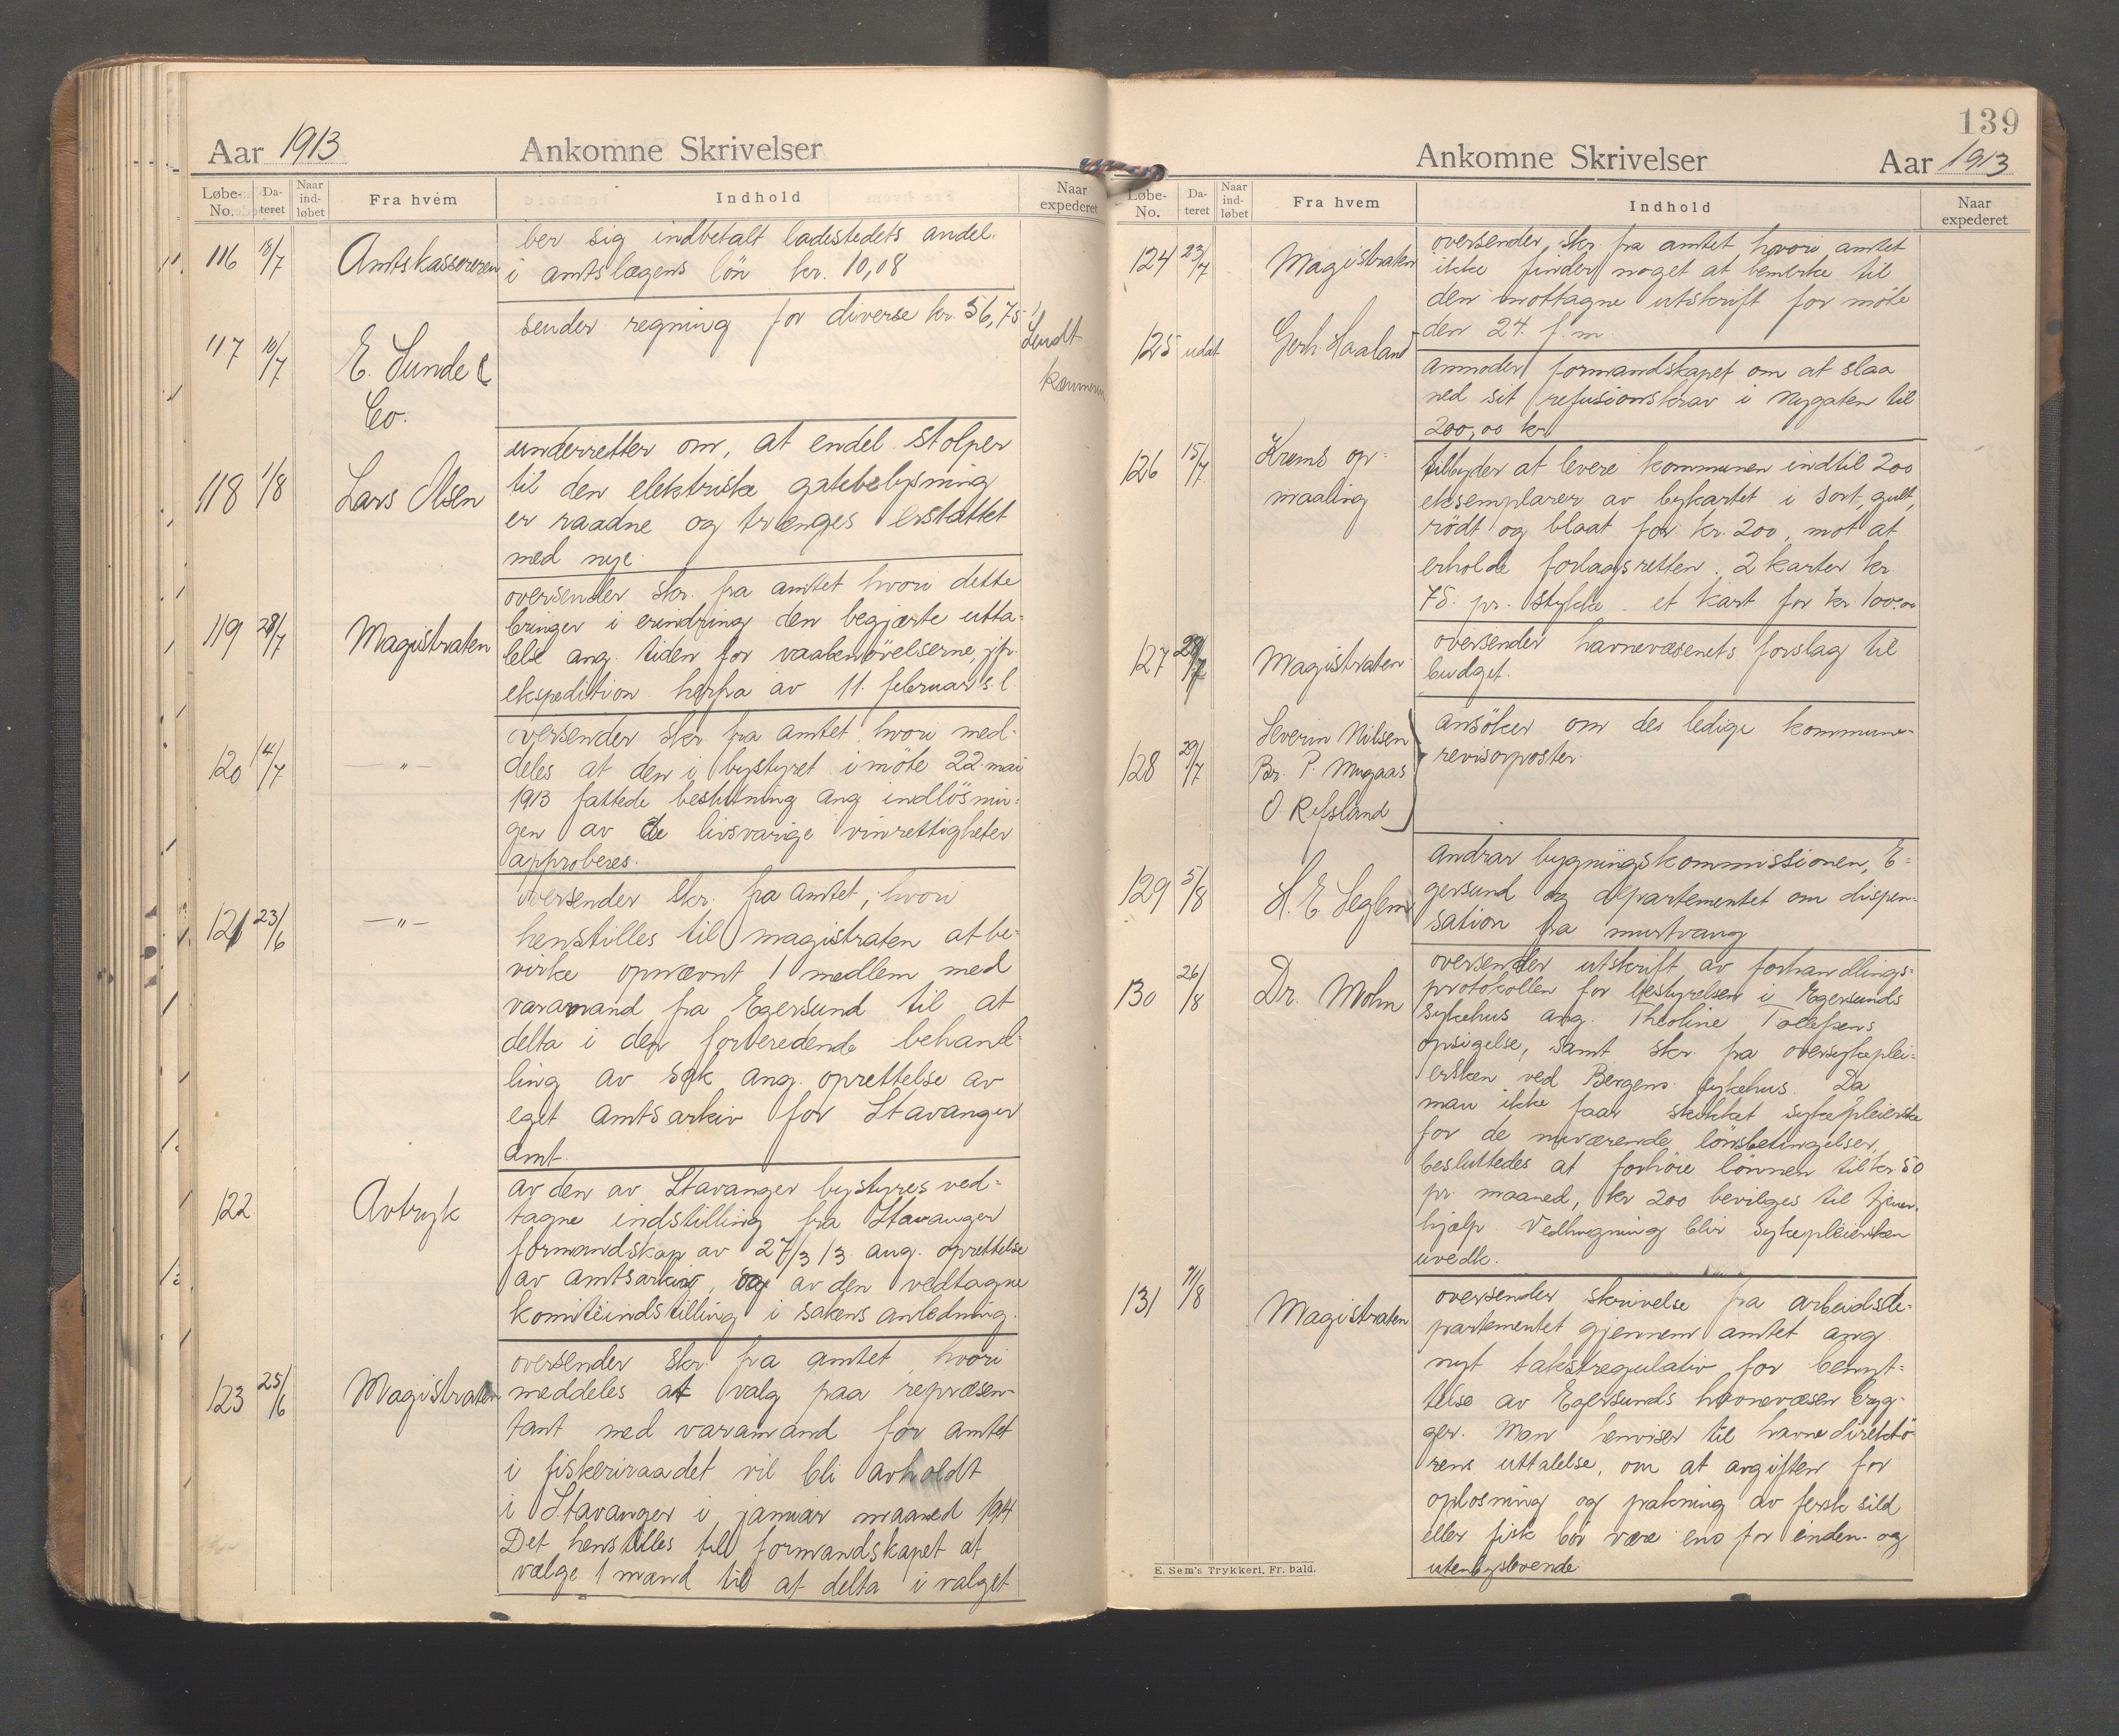 Aar 1913
Ankomne Skrivelser
Løbe-No.
Dateret
Naar indløbet
Fra hvem
Indhold
Naar expederet
116 18/7 Amtskassereren
ber sig indbetalt ladestedets andel
i amtslægens løn kr. 10,08
117 10/7 E. Sunde &
Co.
sender regning for diverse kr. 36,75
Sendt
kæmneren
118 1/8 Lars Olsen
underretter om, at endel stolper
til den elektriske gatebelysning
er raadne og trænges erstattet
med nye.
119 28/7 Magistraten
oversender skr. fra amtet hvori dette
bringer i erindring den begjærte utta-
lelse ang. tiden for vaabenøvelserne, jfr.
ekspedition herfra av 11. februar s. l.
120 14/7 — " —
oversender skr fra amtet, hvori med-
deles at den i bystyret i møte 22. mai
1913 fattede beslutning ang indløsnin-
gen av de livsvarige vinrettigheter
approberes.
121 23/6 — " —
oversender skr. fra amtet, hvori
henstilles til magistraten at be-
virke opnævnt 1 medlem med
varamand fra Egersund til at
delta i den forberedende behand-
ling av sak ang. oprettelse av
eget amtsarkiv for Stavanger
amt.
122 Avtryk
av den av Stavanger bystyres ved-
tagne indstilling fra Stavanger
formandskap av 27/3 13. ang. oprettelse
av amtsarkiv, og av den vedtagne
komiteindstilling i sakens anledning.
123 25/6 Magistraten
oversender skr. fra amtet, hvori
meddeles at valg paa repræsen-
tant med varamand for amtet
i fiskeriraadet vil bli avholdt
i Stavanger i januar maaned 1914
Det henstilles til formandskapet at
vælge 1 mand til at delta i valget
139
Ankomne Skrivelser
Aar 1913
Løbe-No.
Dateret
Naar indløbet
Fra hvem
Indhold
Naar expederet
124 23/7 Magistraten
oversender skr. fra amtet, hvori amtet
ikke finder noget at bemerke til
den mottagne utskrift for møte
den 24. f. m.
125 udat Gerh. Haaland
anmoder formandskapet om at slaa
ned sit refusionskrav i Nygaten til
200,00 kr
126 15/7 Krums op-
maaling
tilbyder at levere kommunen indtil 200
eksemplarer av bykartet i sort, gult,
rødt og blaat for kr. 200, mot at
erholde forlagsretten. 2 karter kr.
75. pr. stykke. et kart for kr. 100.00
127 29/7 Magistraten
oversender havnevæsenets forslag til
budget.
128 29/7 Severin Nilsen
Br. P. Mugaas
O. Refsland
ansøker om den ledige kommune-
revisorposter.
129 5/8 H. E. Seglem
andrar bygningskommissionen, E-
gersund og departementet om dispen-
sation fra murtvang
130 26/8 Dr. Mohn
oversender utskrift av forhandlings-
protokollen for bestyrelsen i Egersunds
sykehus ang. Theoline Tollefsens
opsigelse, samt skr. fra oversykeplei-
ersken ved Bergens sykehus. Da
man ikke faar skikket sykepleierske
for de nuværende lønsbetingelser,
besluttedes at forhøie lønnen til kr. 50
pr. maaned, kr 200 bevilges til tjener-
hjælp. Vedhugning blir sykepleiersken
uvedk.
131 11/8 Magistraten
oversender skrivelse fra arbeidsde-
partementet gjennem amtet ang
nyt takstregulativ for benyt-
telse av Egersunds havnevæsen bryg-
ger. Man henviser til havnedirektø-
rens uttalelse, om at avgiften for
oplosning og pakning av fersk sild
eller fisk bør være ens for inden- og
utenbysboende.
E. Sem's Trykkeri, Fr. hald.